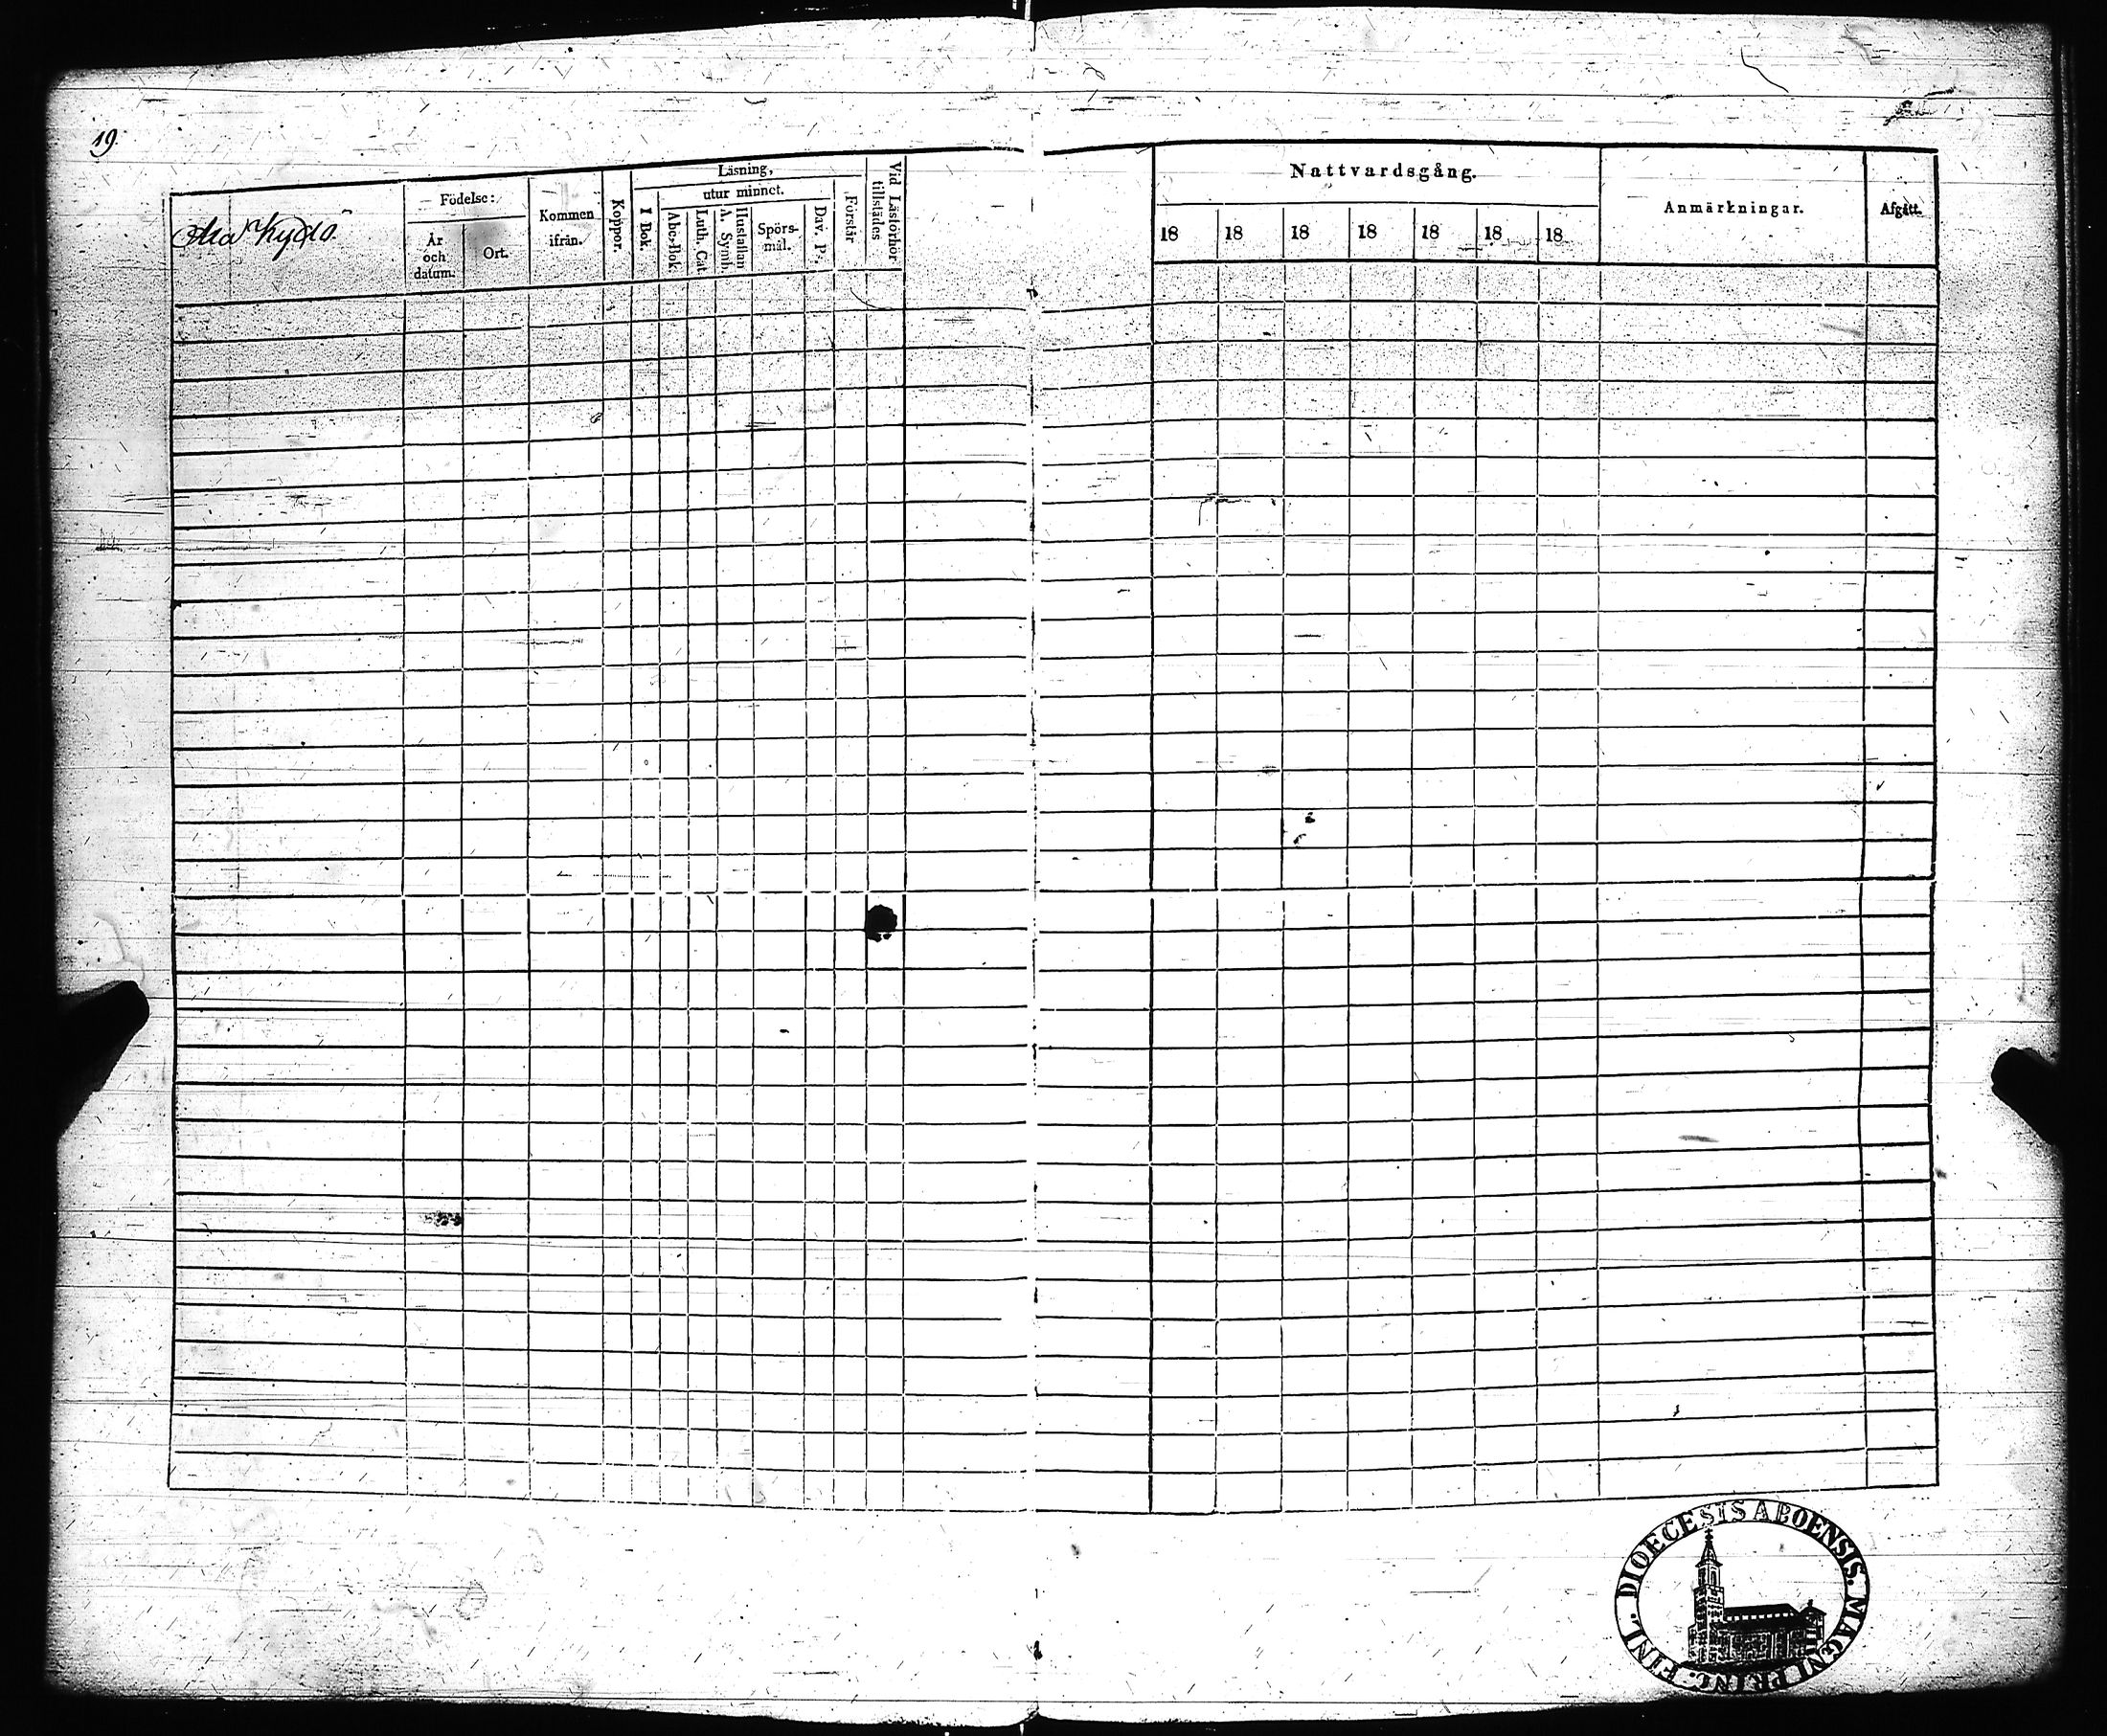 19.
Födelse:
År
och
datum.
Ort.
Kommen
ifrån.
Koppor.
Läsning,
utur minnet.
I Bok.
Abc-Bok
Luth. Cat.
Hustaflan
A. Symb.
Spörs-
mål.
Dav. Ps.
Förstår
Vid Läsförhör
tillstädes
Nattvardsgång.
18 18 18 18 18 18 18
Anmärkningar.
Afgått.
DIOECESIS ABOENSIS. MAGNI PRINC. FINL.